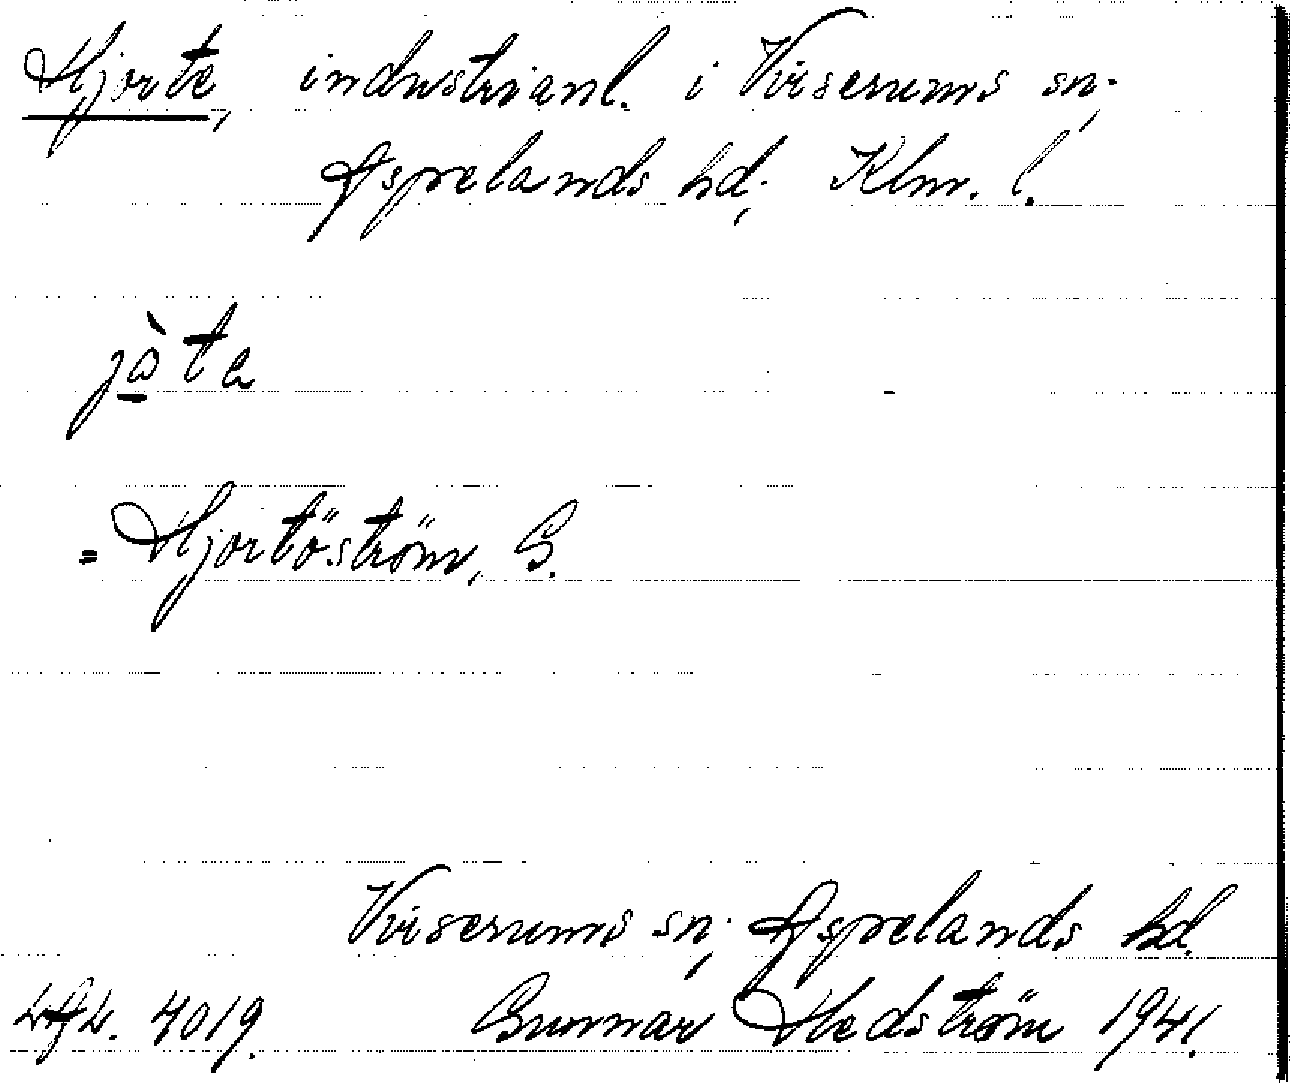 Hjorte, industrianl. i Virserums sn,
Aspelands hd, Klm. l.
jòte
= Hjortöström, G.
Virserums sn, Aspelands hd.
4019. Gunnar Hedström 1941.